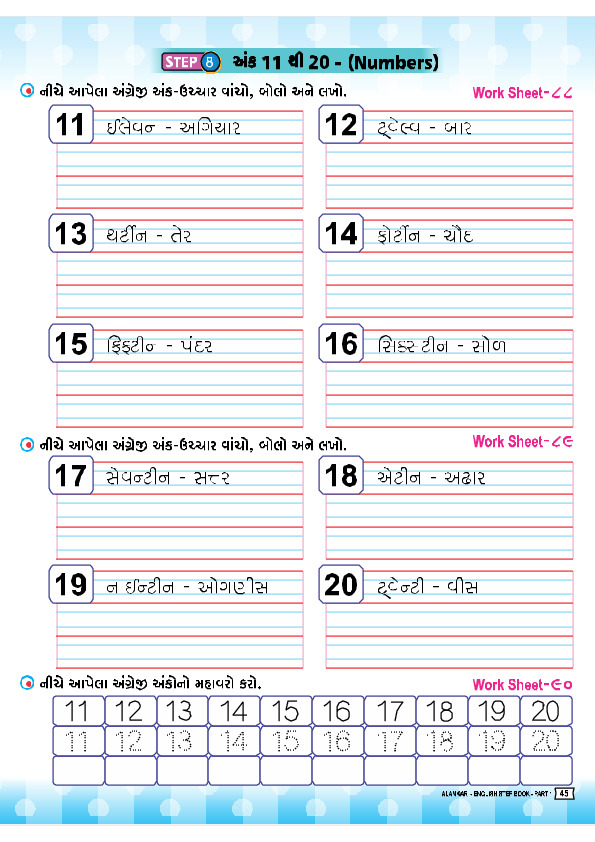 STEP 8 અંક 11 થી 20 - (Numbers)
નીચે આપેલા અંગ્રેજી અંક-ઉચ્ચાર વાંચો, બોલો અને લખો. Work Sheet-૮૮
11 ઈલેવન - અગિયાર 12 ટ્વેલ્વ - બાર
13 થર્ટીન - તેર 14 ફોર્ટીન - ચૌદ
15 ફિફ્ટીન - પંદર 16 સિક્સ્ટીન - સોળ
નીચે આપેલા અંગ્રેજી અંક-ઉચ્ચાર વાંચો, બોલો અને લખો. Work Sheet-૮૯
17 સેવન્ટીન - સત્તર 18 એટીન - અઢાર
19 નાઈન્ટીન - ઓગણીસ 20 ટ્વેન્ટી - વીસ
નીચે આપેલા અંગ્રેજી અંકોનો મહાવરો કરો. Work Sheet-૯૦
11 12 13 14 15 16 17 18 19 20
11 12 13 14 15 16 17 18 19 20
ALANKAR - ENGLISH STEP BOOK - PART 1 45